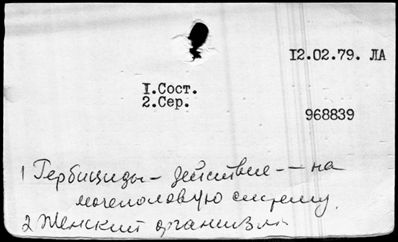 12.02.79. ЛА
1.Сост.
2.Сер.
968839
1 Гербициды – действие – – на
мочеполовую систему.
2 Женский организм